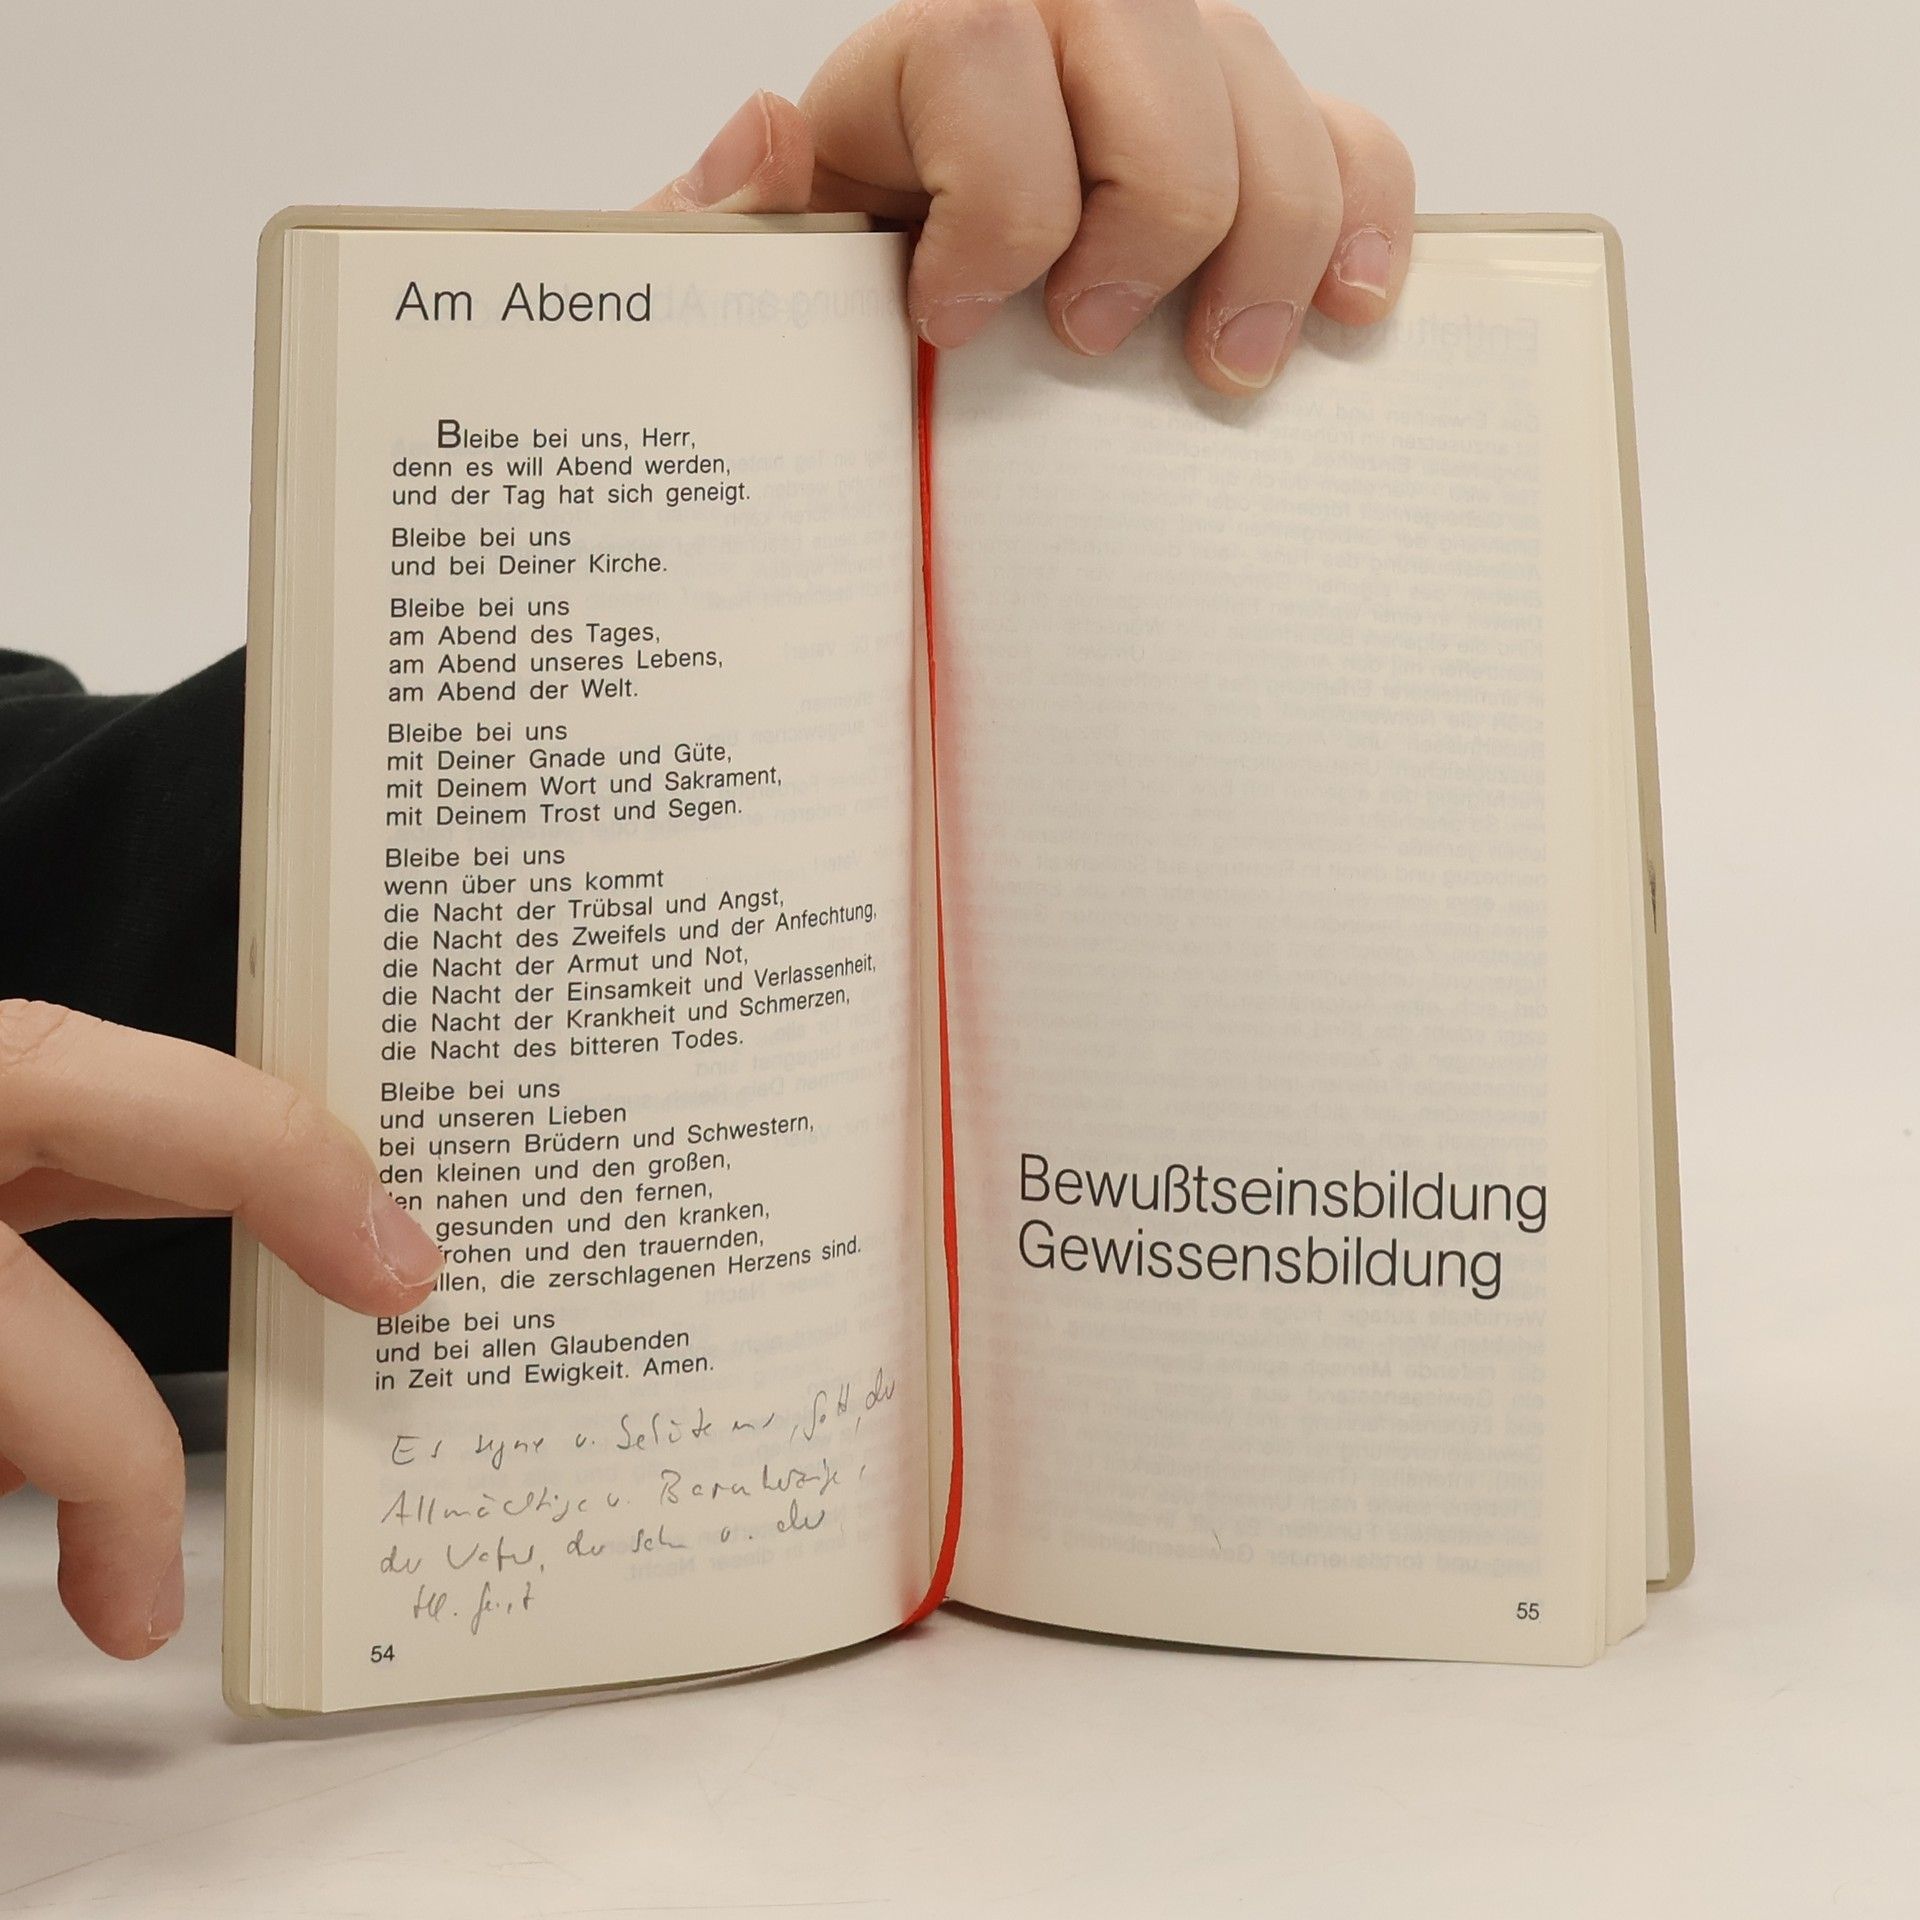 Am Abend
Bleibe bei uns, Herr,
denn es will Abend werden,
und der Tag hat sich geneigt.
Bleibe bei uns
und bei Deiner Kirche.
Bleibe bei uns
am Abend des Tages,
am Abend unseres Lebens,
am Abend der Welt.
Bleibe bei uns
mit Deiner Gnade und Güte,
mit Deinem Wort und Sakrament,
mit Deinem Trost und Segen.
Bleibe bei uns
wenn über uns kommt
die Nacht der Trübsal und Angst,
die Nacht des Zweifels und der Anfechtung,
die Nacht der Armut und Not,
die Nacht der Einsamkeit und Verlassenheit,
die Nacht der Krankheit und Schmerzen,
die Nacht des bitteren Todes.
Bleibe bei uns
und unseren Lieben
bei unsern Brüdern und Schwestern,
den kleinen und den großen,
en nahen und den fernen,
gesunden und den kranken,
frohen und den trauernden,
llen, die zerschlagenen Herzens sind.
Bleibe bei uns
und bei allen Glaubenden
in Zeit und Ewigkeit. Amen.
Es segne u. behüte uns, Gott, der
Allmächtige u. Barmherzige,
der Vater, der Sohn u. der
Hl. Geist
54
Bewußtseinsbildung
Gewissensbildung
55